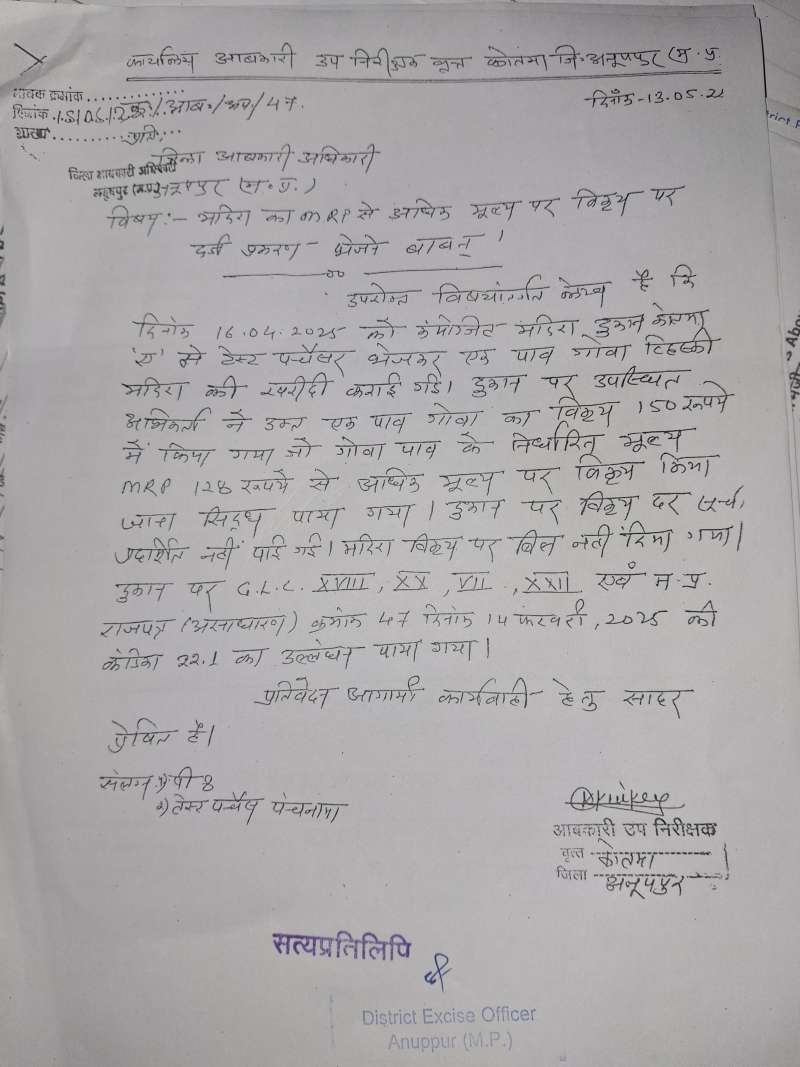 कार्यालय आबकारी उप निरीक्षक वृत्त कोतमा जि. अनूपपुर (म.प्र.
आवक क्रमांक
दिनांक
/आब./अप/47.
दिनाँक-13.05.25
शाखा
प्रति,
जिला आबकारी अधिकारी
जिला आबकारी अधिकारी
अनूपपुर (म.प्र.)
विषय:- मदिरा का MRP से अधिक मूल्य पर विक्रय पर
दर्ज प्रकरण भेजने बाबत्।
उपरोक्त विषयांतर्गत लेख है कि
दिनांक 16.04.2025 को कंपोजिट मदिरा दुकान कोतमा
'ए' मे टेस्ट परचेसर भेजकर एक पाव गोवा व्हिस्की
मदिरा की खरीदी कराई गई। दुकान पर उपस्थित
अभिकर्ता ने उक्त एक पाव गोवा का विक्रय 150 रूपये
में किया गया जो गोवा पाव के निर्धारित मूल्य
MRP 128 रूपये से अधिक मूल्य पर विक्रय किया
जाना सिद्ध पाया गया। दुकान पर विक्रय दर सूची
प्रदर्शित नहीं पाई गई। मदिरा विक्रय पर बिल नहीं दिया गया।
दुकान पर G.L.C. XVIII, XX, VII, XXII एवं म.प्र.
राजपत्र (असाधारण) क्रमांक 47 दिनांक 14 फरवरी, 2025 की
कंडिका 22.1 का उल्लंघन पाया गया।
प्रतिवेदन आगामी कार्यवाही हेतु सादर
प्रेषित है।
संलग्न 1) पी 8
2) टेस्ट परचेस पंचनामा
आबकारी उप निरीक्षक
वृत्त कोतमा
जिला अनूपपुर
सत्यप्रतिलिपि
District Excise Officer
Anuppur (M.P.)